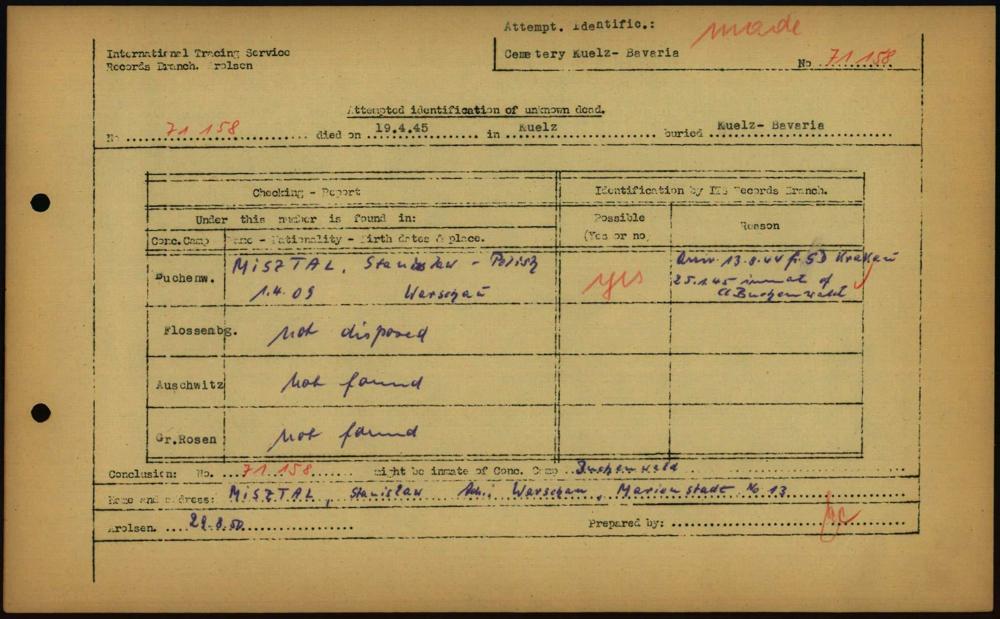 Attempt. Identific.: made
Cemetery Kuelz- Bavaria
No 71 158
International Tracing Service
Records Branch. Arolsen
Attempted identification of unknown dead.
No 71 158 died on 19.4.45 in Kuelz buried Kuelz- Bavaria
Checking - Report
Identification by ITS Records Branch.
Under this number is found in:
Possible
(Yes or no
Reason
Conc.Camp
Name - Nationality - Birth dates & place.
Buchenw.
MISZTAL, Stanislaw - Polish
1.4.09 Warschau
yes
13.8.44 SD Krakau
25.1.45 inmat of
Cl Buchenwald
Flossenbg.
not disposed
Auschwitz
Not found
Gr.Rosen
Not found
Conclusion: No. 71.158 might be inmate of Conc. Camp Buchenwald
Name and address: MISZTAL, Stanislaw Warschau, Marienstadt No 13
Arolsen. 29.8.50
Prepared by: